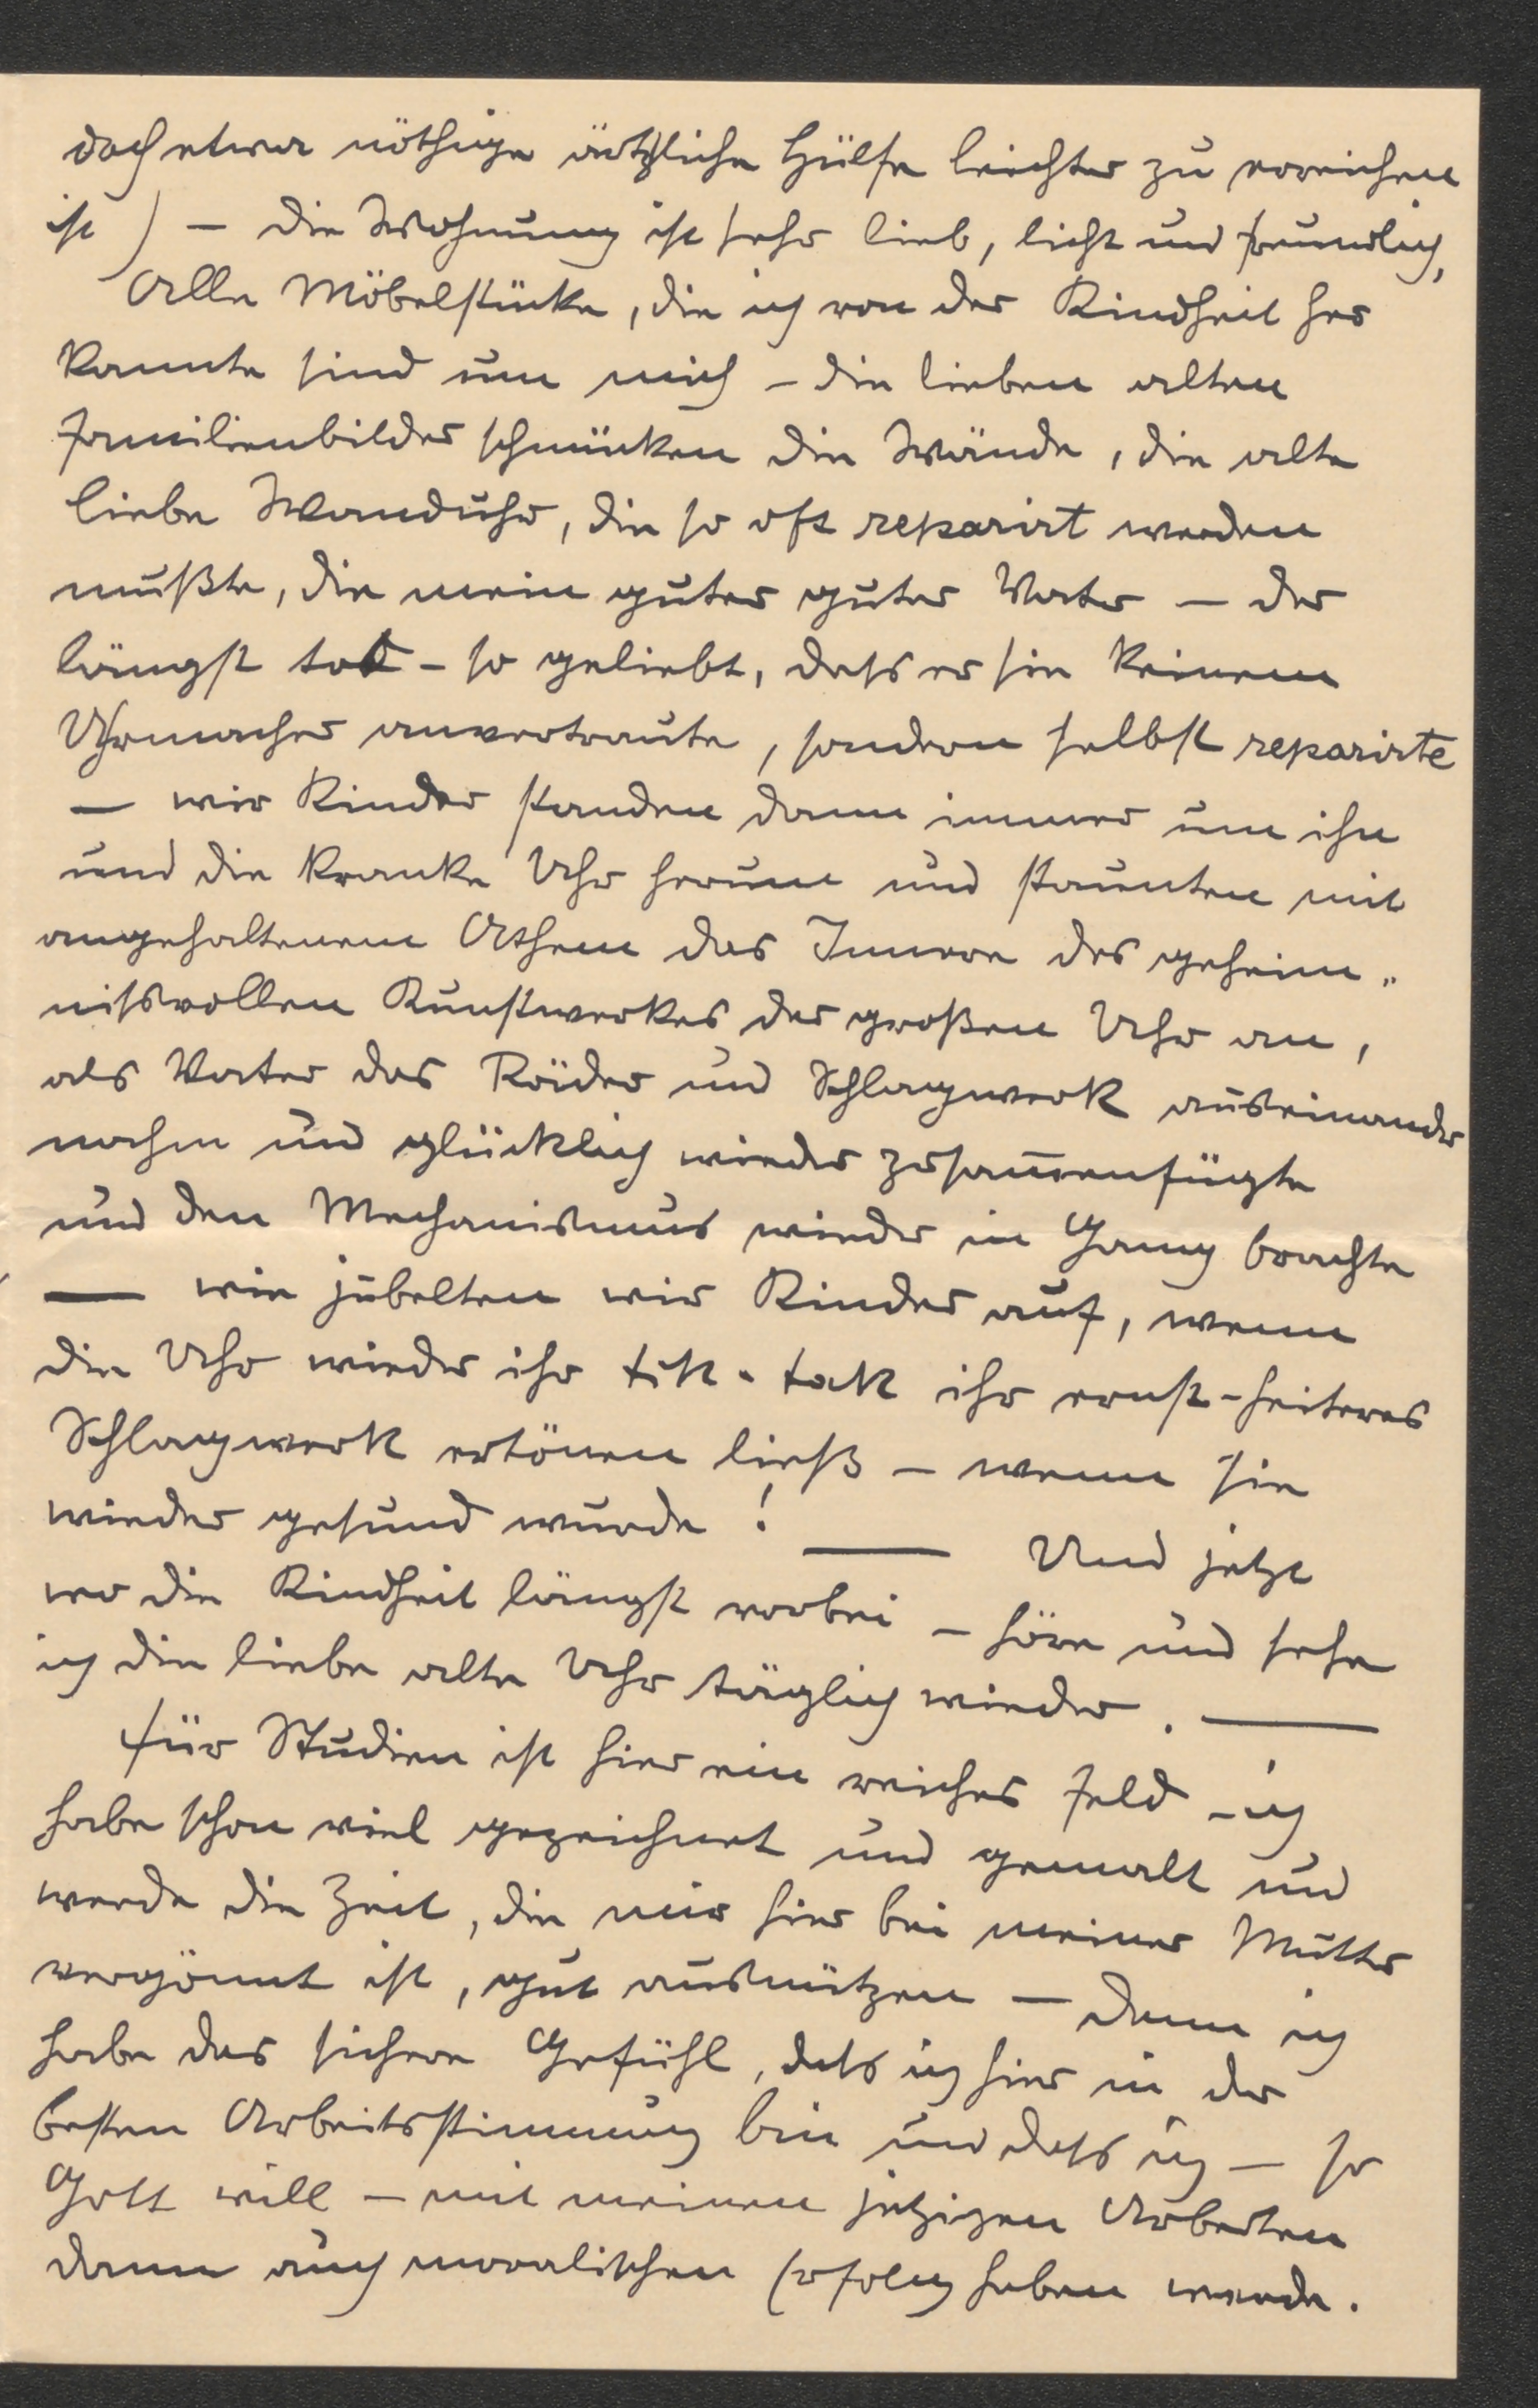 doch etwa nöthige ärtzliche Hülfe leichter zu erreichen
ist ) – die Wohnung ist sehr lieb, licht und freundlich,
Alle Möbelstücke, die ich von der Kindheit her
kannte sind um mich – die lieben alten
Familienbilder schmücken die Wände, die alte
liebe Wanduhr, die so oft reparirt werden
mußte, die mein guter guter Vater – der
längst tot – so geliebt, dass er sie keinem
Uhrmacher anvertraute, sondern selbst reparirte
– wir Kinder standen dann immer um ihn
und die kranke Uhr herum und staunten mit
angehaltenem Athem das Innere des geheim-
nissvollen Kunstwerkes der großen Uhr an,
als Vater das Räder und Schlagwerk auseinander
nahm und glücklich wieder zusam̅enfügte
und den Mechanismus wieder in Gang brachte
— wie jubelten wir Kinder auf, wenn
die Uhr wieder ihr tik-tak ihr ernst-heiteres
Schlagwerk ertönen ließ – wenn sie
wieder gesund wurde ! — Und jetzt
wo die Kindheit längst vorbei – höre und sehe
ich die liebe alte Uhr täglich wieder. —
Für Studien ist hier ein reiches Feld – ich
habe schon viel gezeichnet und gemalt und
werde die Zeit, die mir hier bei meiner Mutter
vergönnt ist, gut ausnützen – denn ich
habe das sichere Gefühl, dass ich hier in der
besten Arbeitsstimmung bin und dass ich – so
Gott will – mit meinen jetzigen Arbeiten
dann auch moralischen Erfolg haben werde.